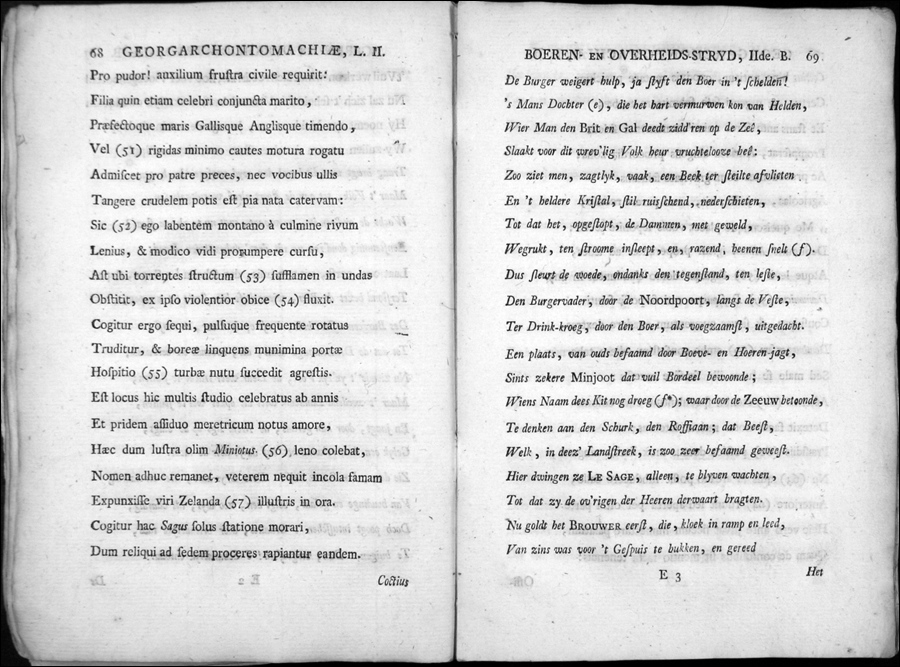 68 GEORGARCHONTOMACHIÆ, L. II.
Pro pudor! auxilium fruſtra civile requirit:
Filia quin etiam celebri conjuncta marito,
Præfectoque maris Gallisque Anglisque timendo,
Vel (51) rigidas minimo cautes motura rogatu
Admiſcet pro patre preces, nec vocibus ullis
Tangere crudelem potis eſt pia nata catervam:
Sic (52) ego labentem montano à culmine rivum
Lenius, & modico vidi prorumpere curſu,
Aſt ubi torrentes ſtructum (53) ſufflamen in undas
Obſtitit, ex ipſo violentior obice (54) fluxit.
Cogitur ergo ſequi, pulſuque frequente rotatus
Truditur, & boreæ linquens munimina portæ
Hoſpitio (55) turbæ nutu ſuccedit agreſtis.
Eſt locus hic multis ſtudio celebratus ab annis
Et pridem aſſiduo meretricum notus amore,
Hæc dum luſtra olim Miniotus (56) leno colebat,
Nomen adhuc remanet, veterem nequit incola famam
Expunxiſſe viri Zelanda (57) illuſtris in ora.
Cogitur hac Sagus ſolus ſtatione morari,
Dum reliqui ad ſedem proceres rapiantur eandem.
E 2
Coctius
BOEREN- EN OVERHEIDS-STRYD, IIde. B. 69
De Burger weigert hulp, ja ſlyft den Boer in 't ſchelden!
's Mans Dochter (e), die het hart vermurwen kon van Helden,
Wier Man den Brit en Gal deedt zidd'ren op de Zeê,
Slaakt voor dit wrev'lig Volk heur vruchtelooze beê:
Zoo ziet men, zagtlyk, vaak, een Beek ter ſteilte afvlieten
En 't heldere Kriſtal, ſtil ruiſchend, nederſchieten,
Tot dat het, opgeſtopt, de Dammen, met geweld,
Wegrukt, ten ſtroome inſleept, en, razend, heenen ſnelt (f).
Dus ſleurt de woede, ondanks den tegenſtand, ten leſte,
Den Burgervader, door de Noordpoort, langs de Veſte,
Ter Drink-kroeg, door den Boer, als voegzaamſt, uitgedacht.
Een plaats, van ouds befaamd door Boeve- en Hoeren-jagt,
Sints zekere Minjoot dat vuil Bordeel bewoonde;
Wiens Naam dees Kit nog droeg (f*); waar door de Zeeuw betoonde,
Te denken aan den Schurk, den Roffiaan; dat Beeſt,
Welk, in deez' Landſtreek, is zoo zeer befaamd geweeſt.
Hier dwingen ze LE SAGE, alleen, te blyven wachten,
Tot dat zy de ov'rigen der Heeren derwaart bragten.
Nu goldt het BROUWER eerſt, die, kloek in ramp en leed,
Van zins was voor 't Geſpuis te bukken, en gereed
E 3
Het